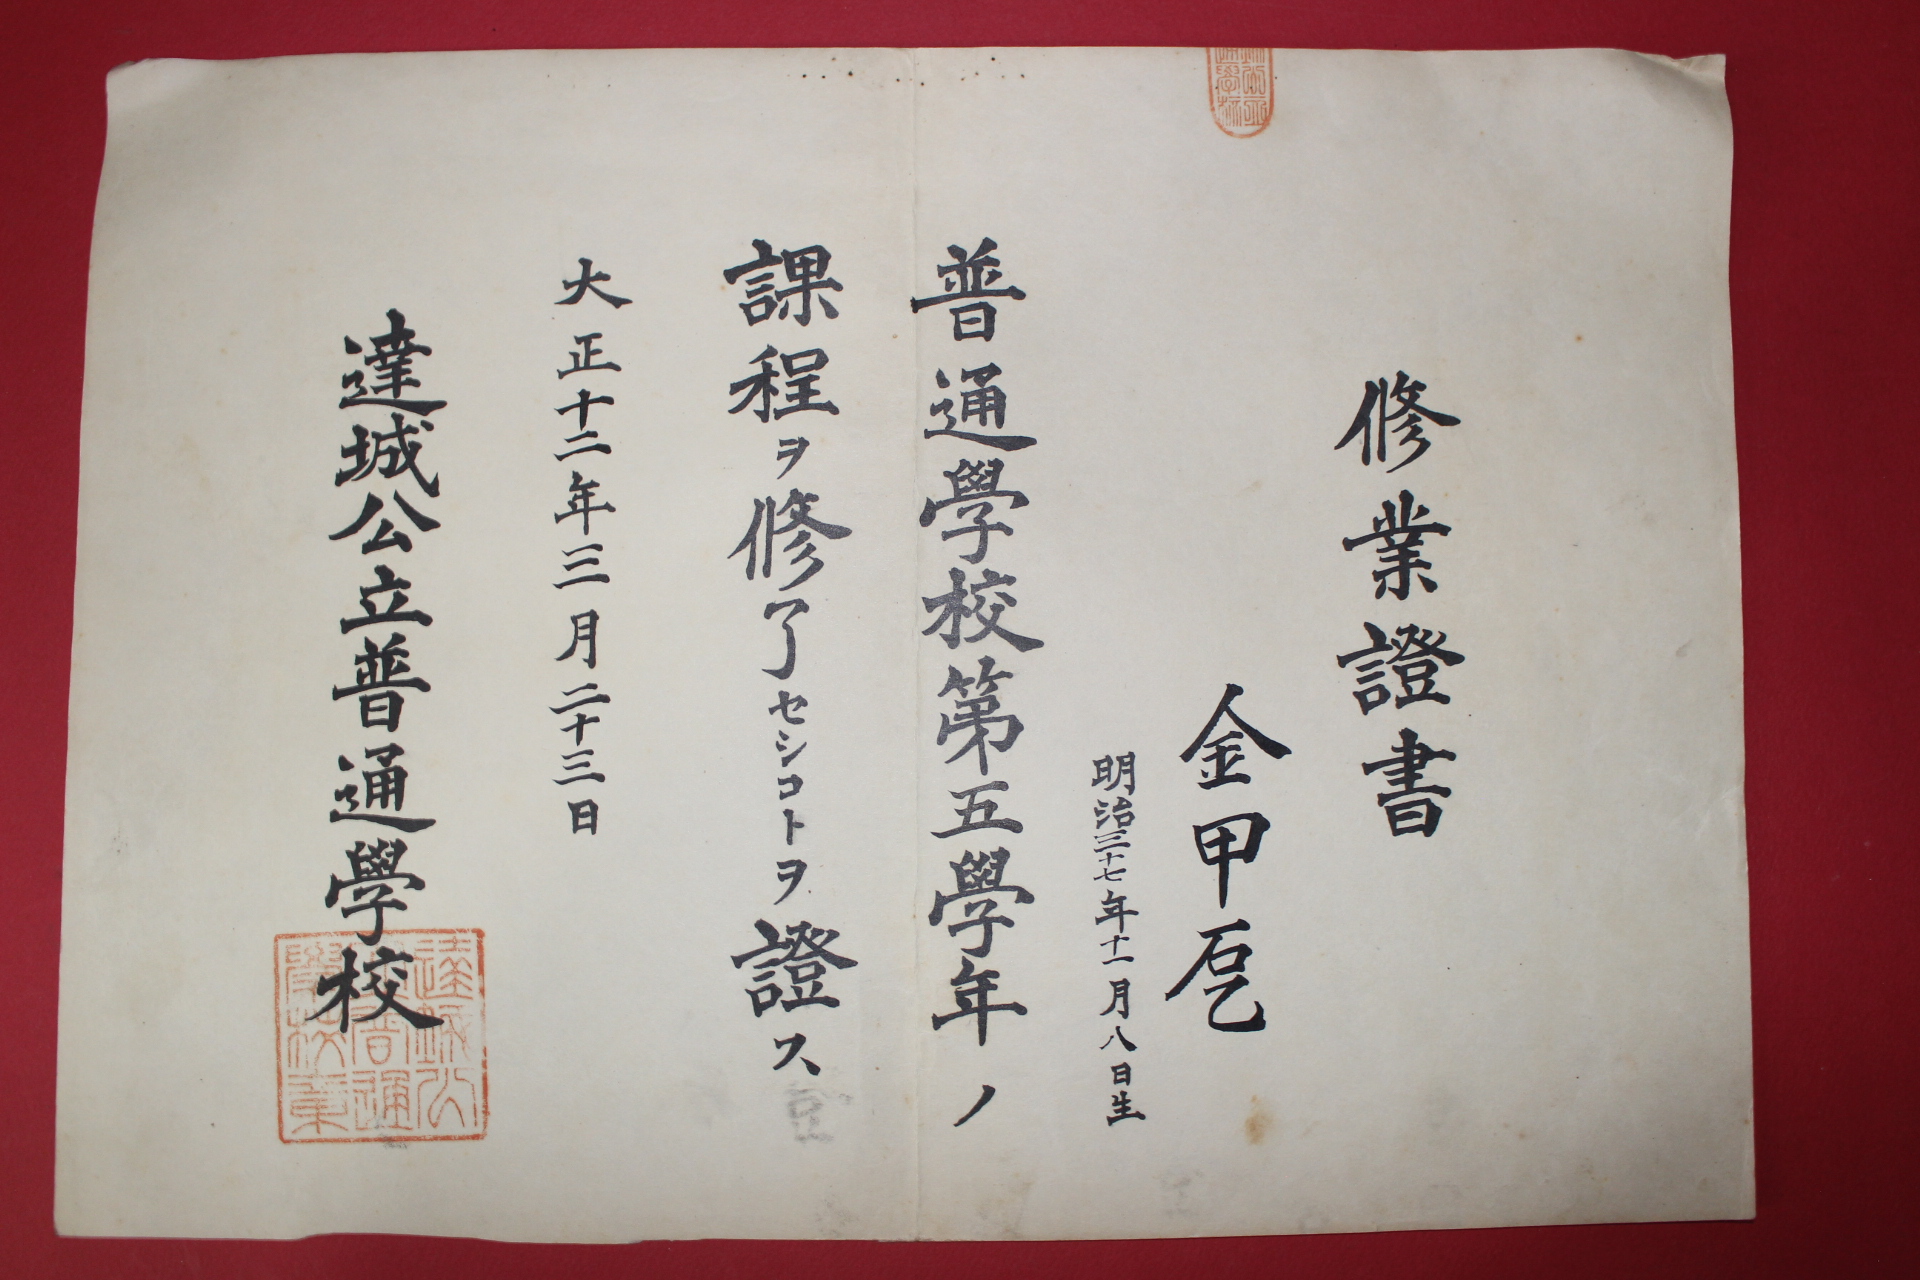 修業證書
金甲乭
明治三十七年十一月八日生
普通學校第五學年ノ
課程ヲ修了セシコトヲ證ス
大正十二年三月二十三日
達城公立普通學校